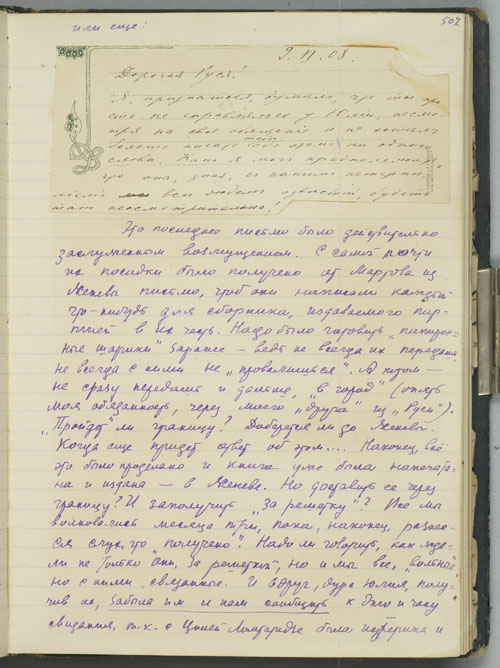 или еще:
507
9. VI. 08.
Дорогая Руся!
Я, признаться, думала, что ты про
меня не справлялась у Юлии, несмо
тря на свое обещание, и не хотела
больше писать тебе ни одного
слова. Как я могла предположить,
что она, зная, с каким нетерпе-
нием мы все будем известий, будет
так неосмотрительна!
Это последнее письмо было действительно
заслуженным возмущением. С самой почти
их посадки было получено от Мартова из
Женевы письмо, чтоб они написали каждый
что-нибудь для сборника, издаваемого пар-
тией в их честь. Надо было готовить „папирос-
ные шарики" заранее – ведь не всегда их передашь,
не всегда с ними не „провалишься". А потом –
не сразу передашь и дальше, „в город" (опять
моя обязанность, через много „других" из „Руси").
„Пройдут" ли границу? Доберется ли до Женевы?
Когда еще придет ответ об этом.... Наконец, всё
это было проделано и книга уже была напечата-
на и издана – в Женеве. Но доставить ее через
границу? И заполучить „за решетку"? Все мы
волновались месяца три, пока, наконец, разнес-
ся слух, что „получено". Надо ли говорить, как жда-
ли не только они, за решеткой, но и мы все, „вольные",
но с ними связанные. И вдруг, дура Юлия, полу-
чив их, забыла им и нам сообщить к дню и часу
свидания, т.к. с Цилей была истерика и